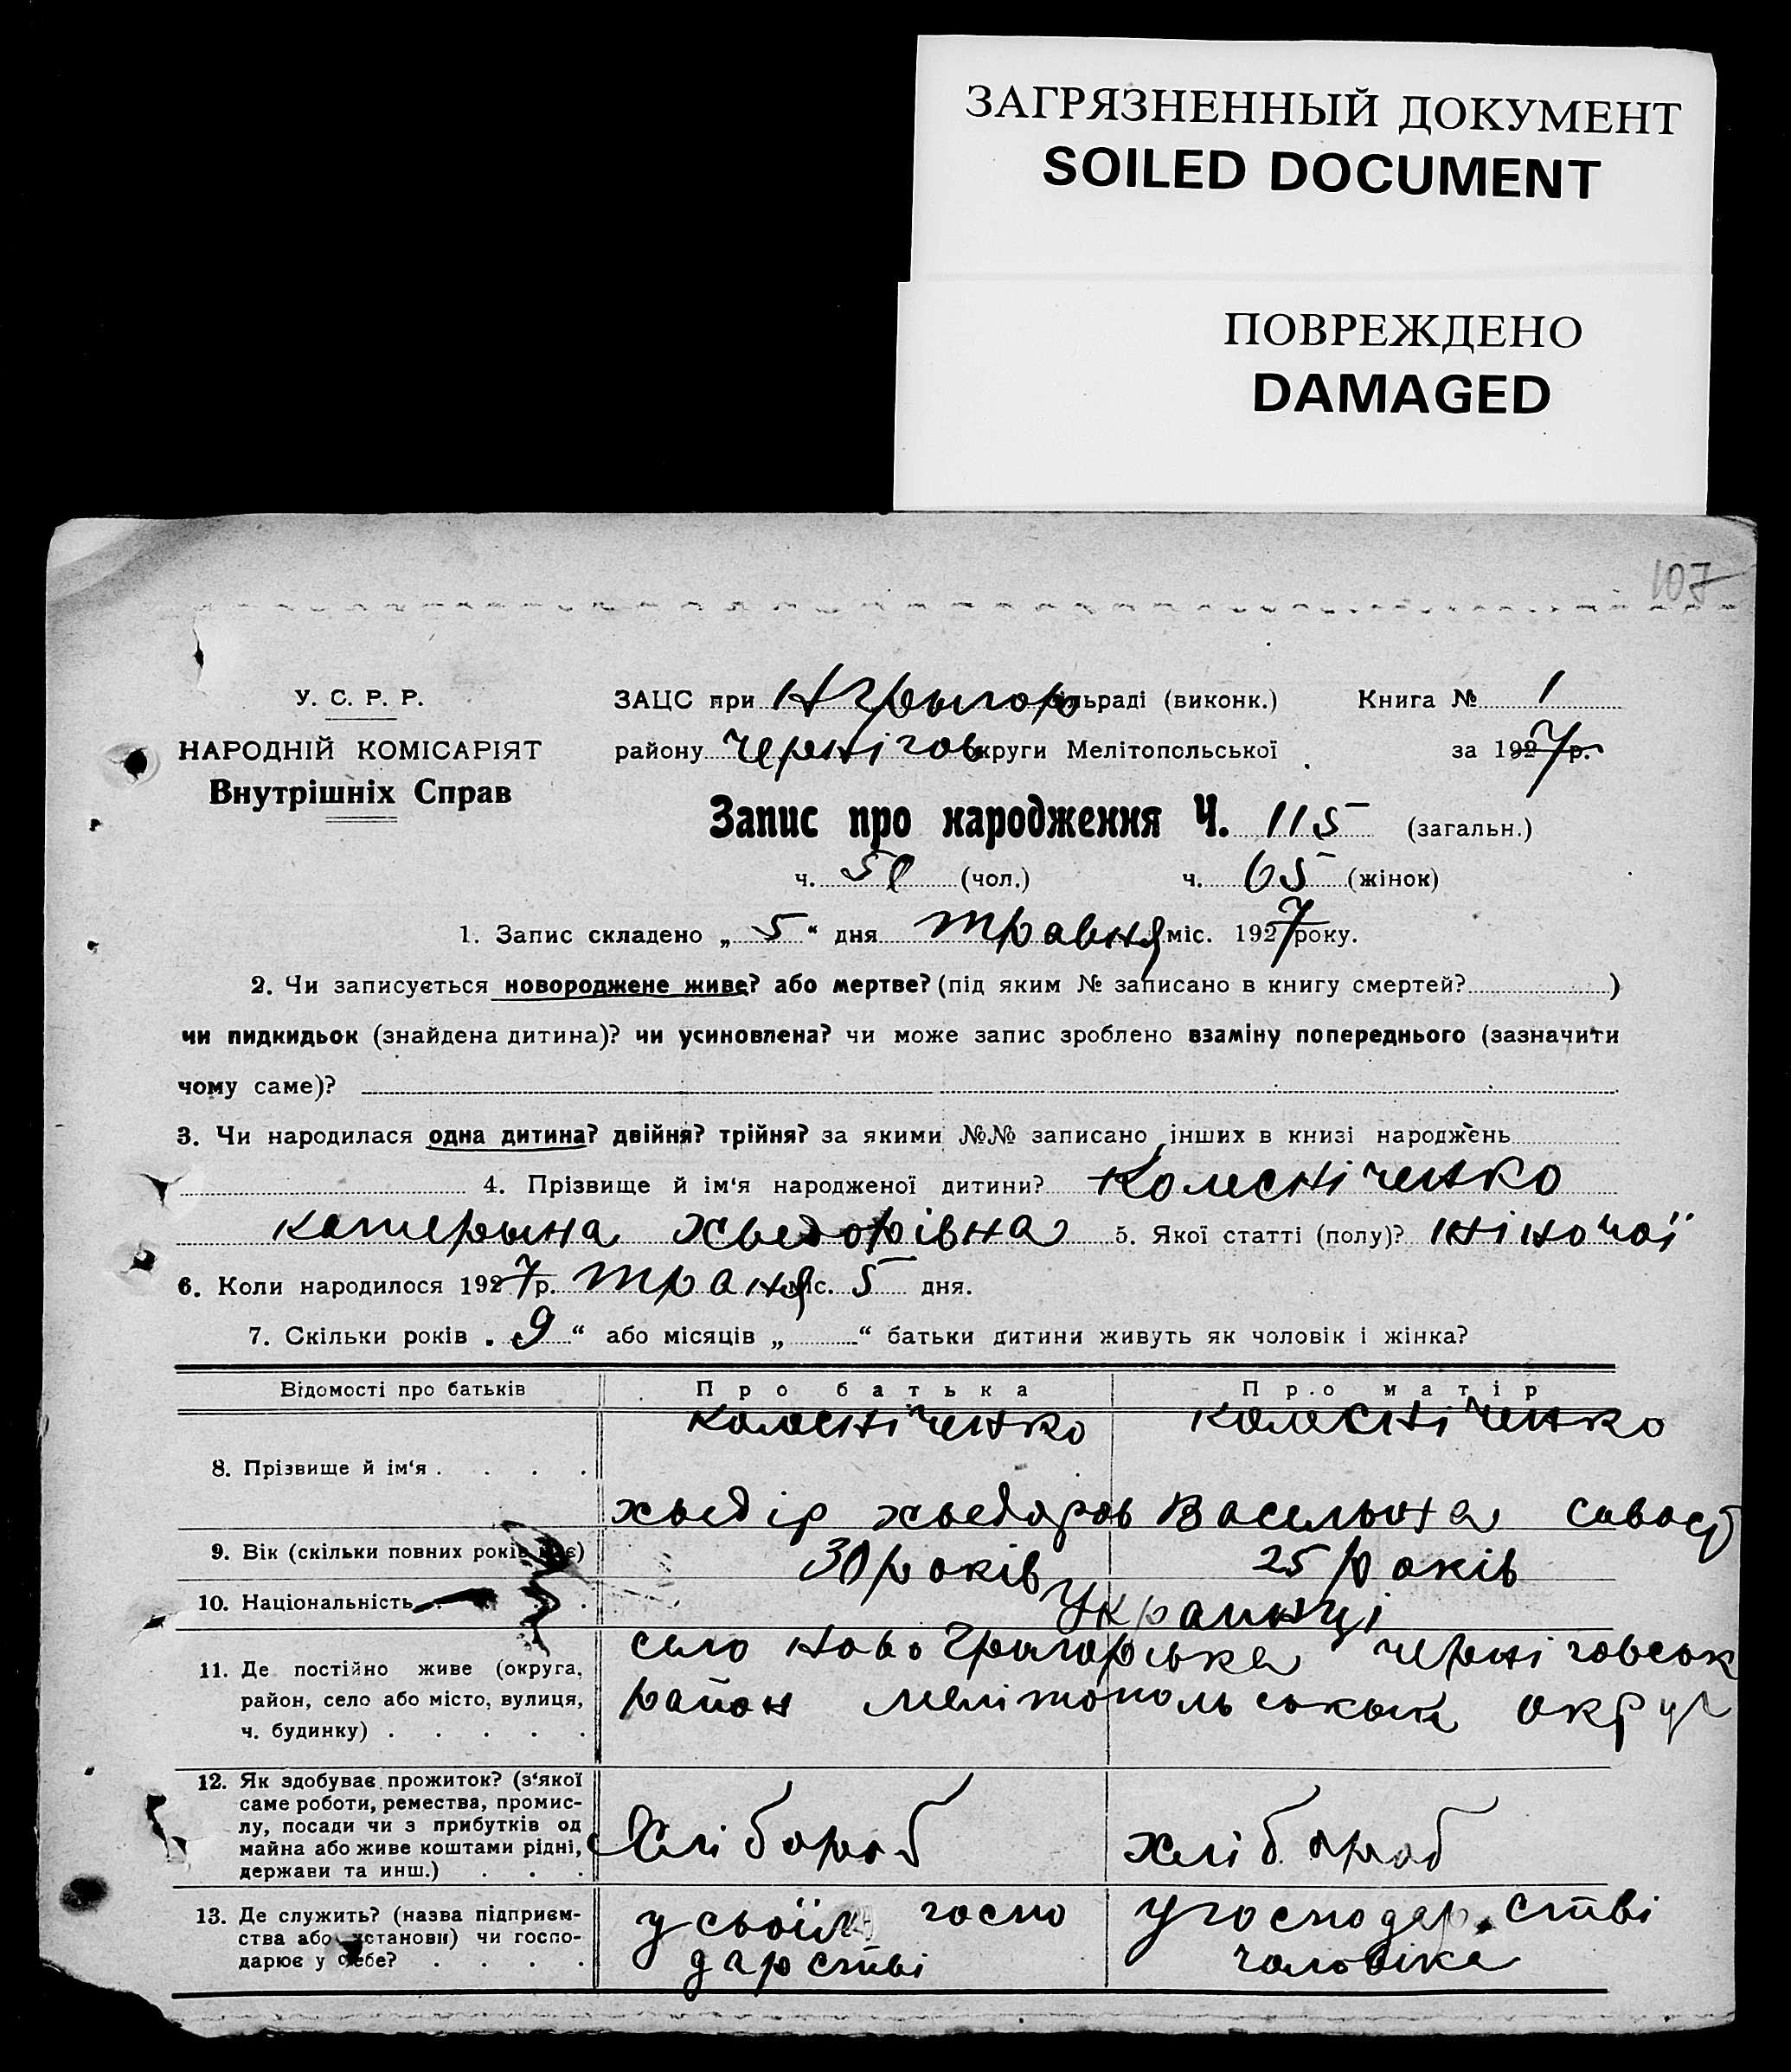 ЗАГРЯЗНЕННЫЙ ДОКУМЕНТ
SOILED DOCUMENT
ПОВРЕЖДЕНО
DAMAGED
107
У. С. Р. Р.
НАРОДНІЙ КОМІСАРІЯТ
Внутрішніх Справ
ЗАЦС при Н Грыгор сільраді (виконк.) Книга № 1
району Чернігов округи Мелітопольської за 1927 р.
Запис про народження Ч. 115 (загальн.)
ч. 50 (чол.) ч. 65 (жінок)
1. Запис складено „ 5 “ дня травня міс. 1927 року.
2. Чи записується новороджене живе? або мертве? (під яким № записано в книгу смертей? )
чи пидкидьок (знайдена дитина)? чи усиновлена? чи може запис зроблено взаміну попереднього (зазначити
чому саме)?
3. Чи народилася одна дитина? двійня? трійня? за якими №№ записано інших в книзі народжень
4. Прізвище й ім'я народженої дитини? Колесніченко
Катерына Хведорівна 5. Якої статті (полу)? жіночої
6. Коли народилося 1927 р. траня міс. 5 дня.
7. Скільки років „ 9 “ або місяців „ “ батьки дитини живуть як чоловік і жінка?
Відомості про батьків Про батька Про матір
8. Прізвище й ім'я . . . . Колесніченко Колесніченко
хведір хведоров Васелына Савост
9. Вік (скільки повних років має) 30 років 25 років
10. Національність Украинці
11. Де постійно живе (округа, район, село або місто, вулиця, ч. будинку) . . . . .
село Ново Грыгорська Черніговськ
район мелітопольськый округ
12. Як здобуває прожиток? (з'якої саме роботи, ремества, промислу, посади чи з прибутків од майна або живе коштами рідні, держави та инш.) . . .
Хлібороб хлібороб
13. Де служить? (назва підприємства або установи) чи господарює у себе? . . . .
у своїм госпо у господарстві
дарстві чоловіка